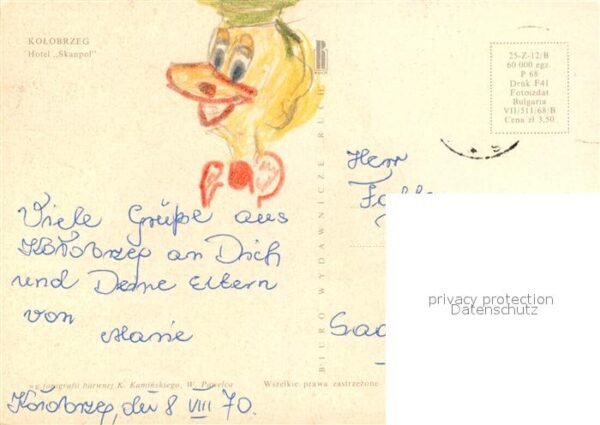 KOŁOBRZEG
Hotel „Skanpol"
25-Z-12/B
60 000 egz.
P 68
Druk F41
Fotoizdat
Bulgaria
VII/511/68/B
Cena zł 3,50
BIURO WYDAWNICZE RUCH
Herr
Viele Grüße aus
Kołobrzeg an Dich
und Deine Eltern
von
Marie
privacy protection
Datenschutz
wg fotografii barwnej K. Kamińskiego, W. Pawelca
Wszelkie prawa zastrzeżone
Kołobrzeg, den 8 VIII 70.